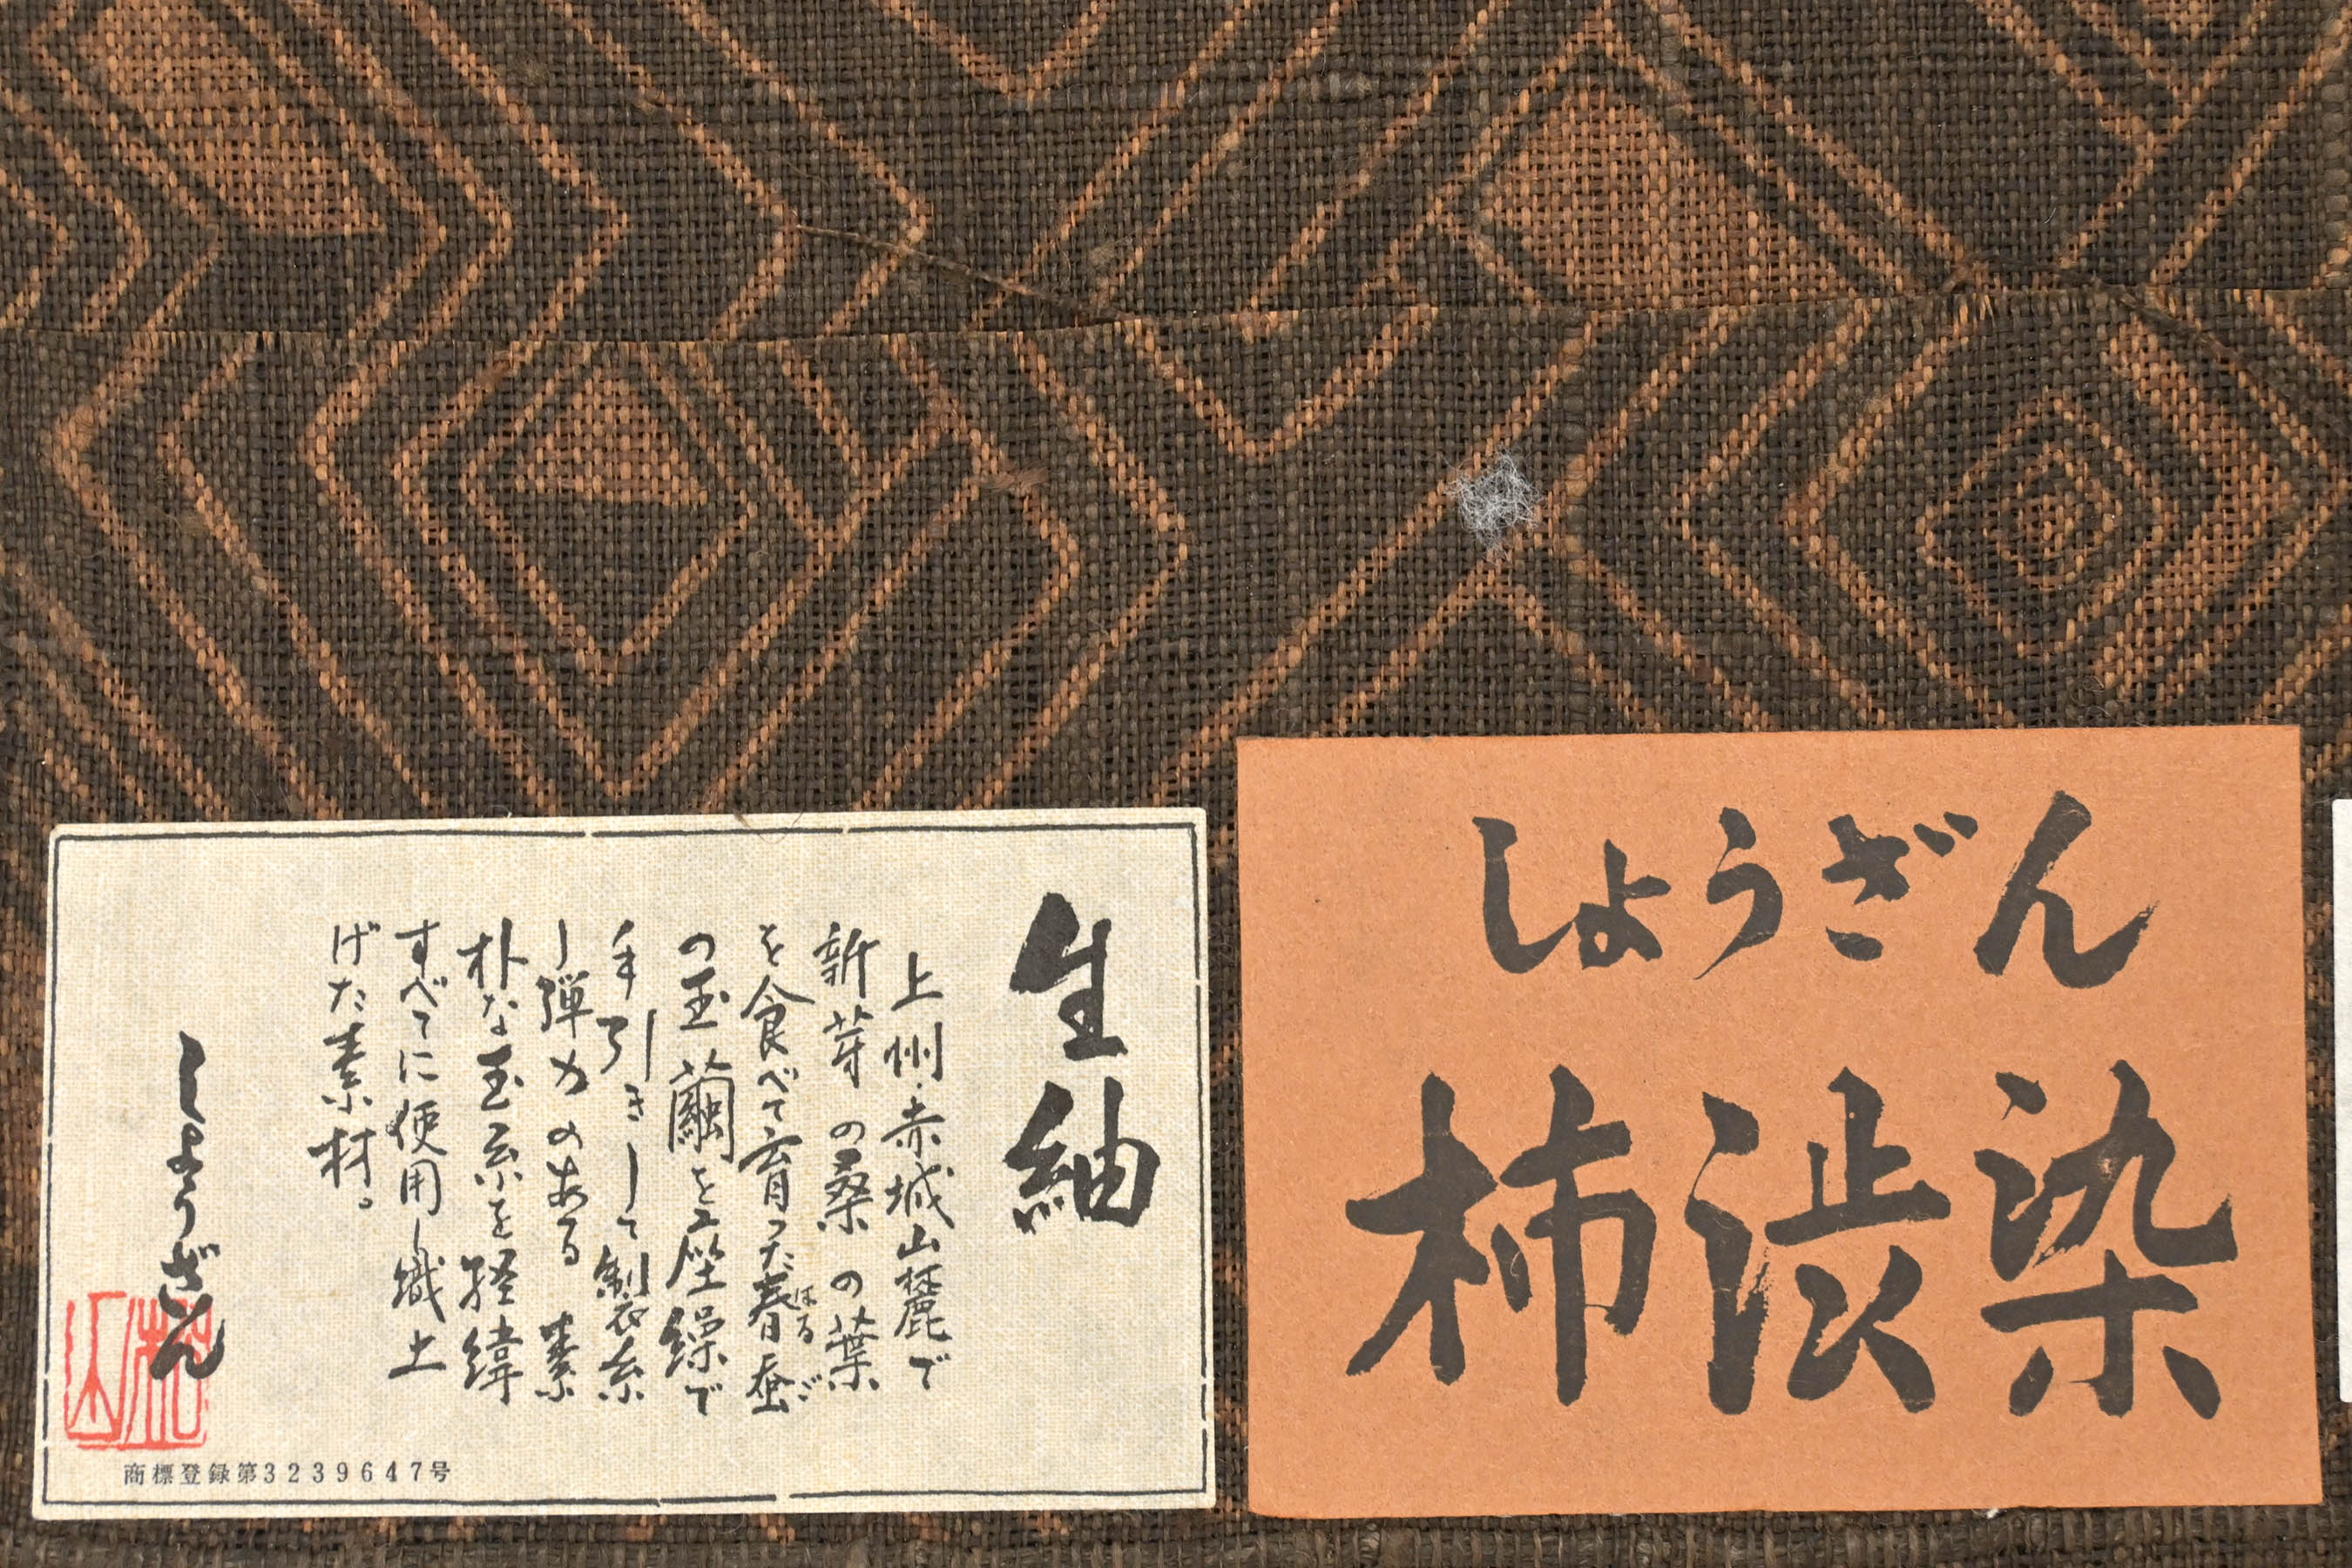 生紬
上州・赤城山麓で
新芽の桑の葉
を食べて育った春蚕
はるご
の玉繭を座繰で
手引きして製糸
し弾力のある素
朴な玉糸を経緯
すべてに使用し織上
げた素材。
しょうざん
商標登録第3239647号
しょうざん
柿渋染